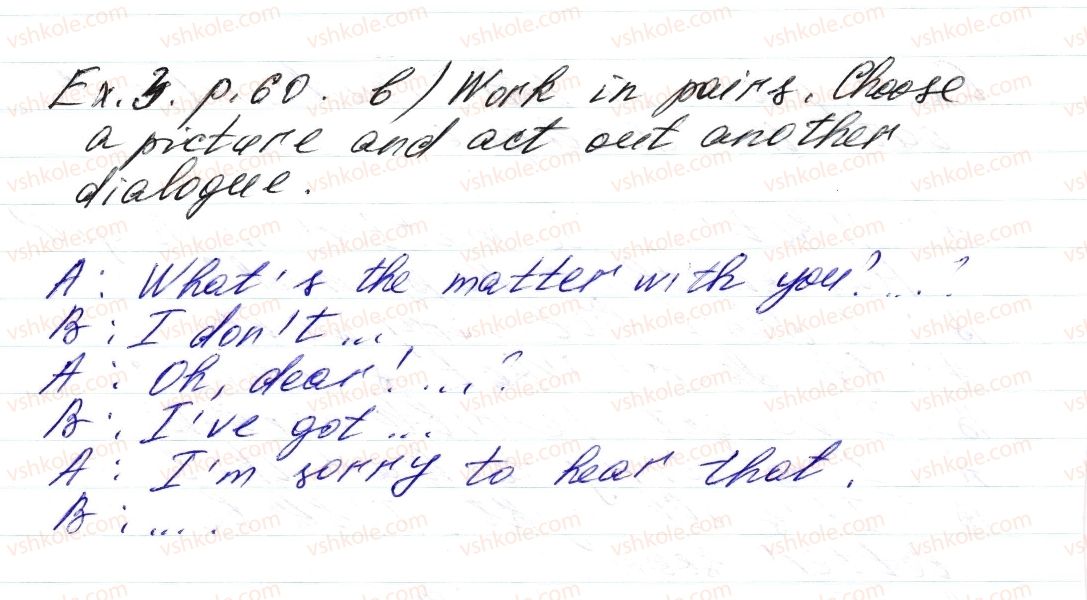 Ex. 3. p. 60. b) Work in pairs. Choose
a picture and act out another
dialogue.
A: What's the matter with you? ...?
B: I don't ...
A: Oh, dear! ...?
B: I've got ...
A: I'm sorry to hear that.
B: ....